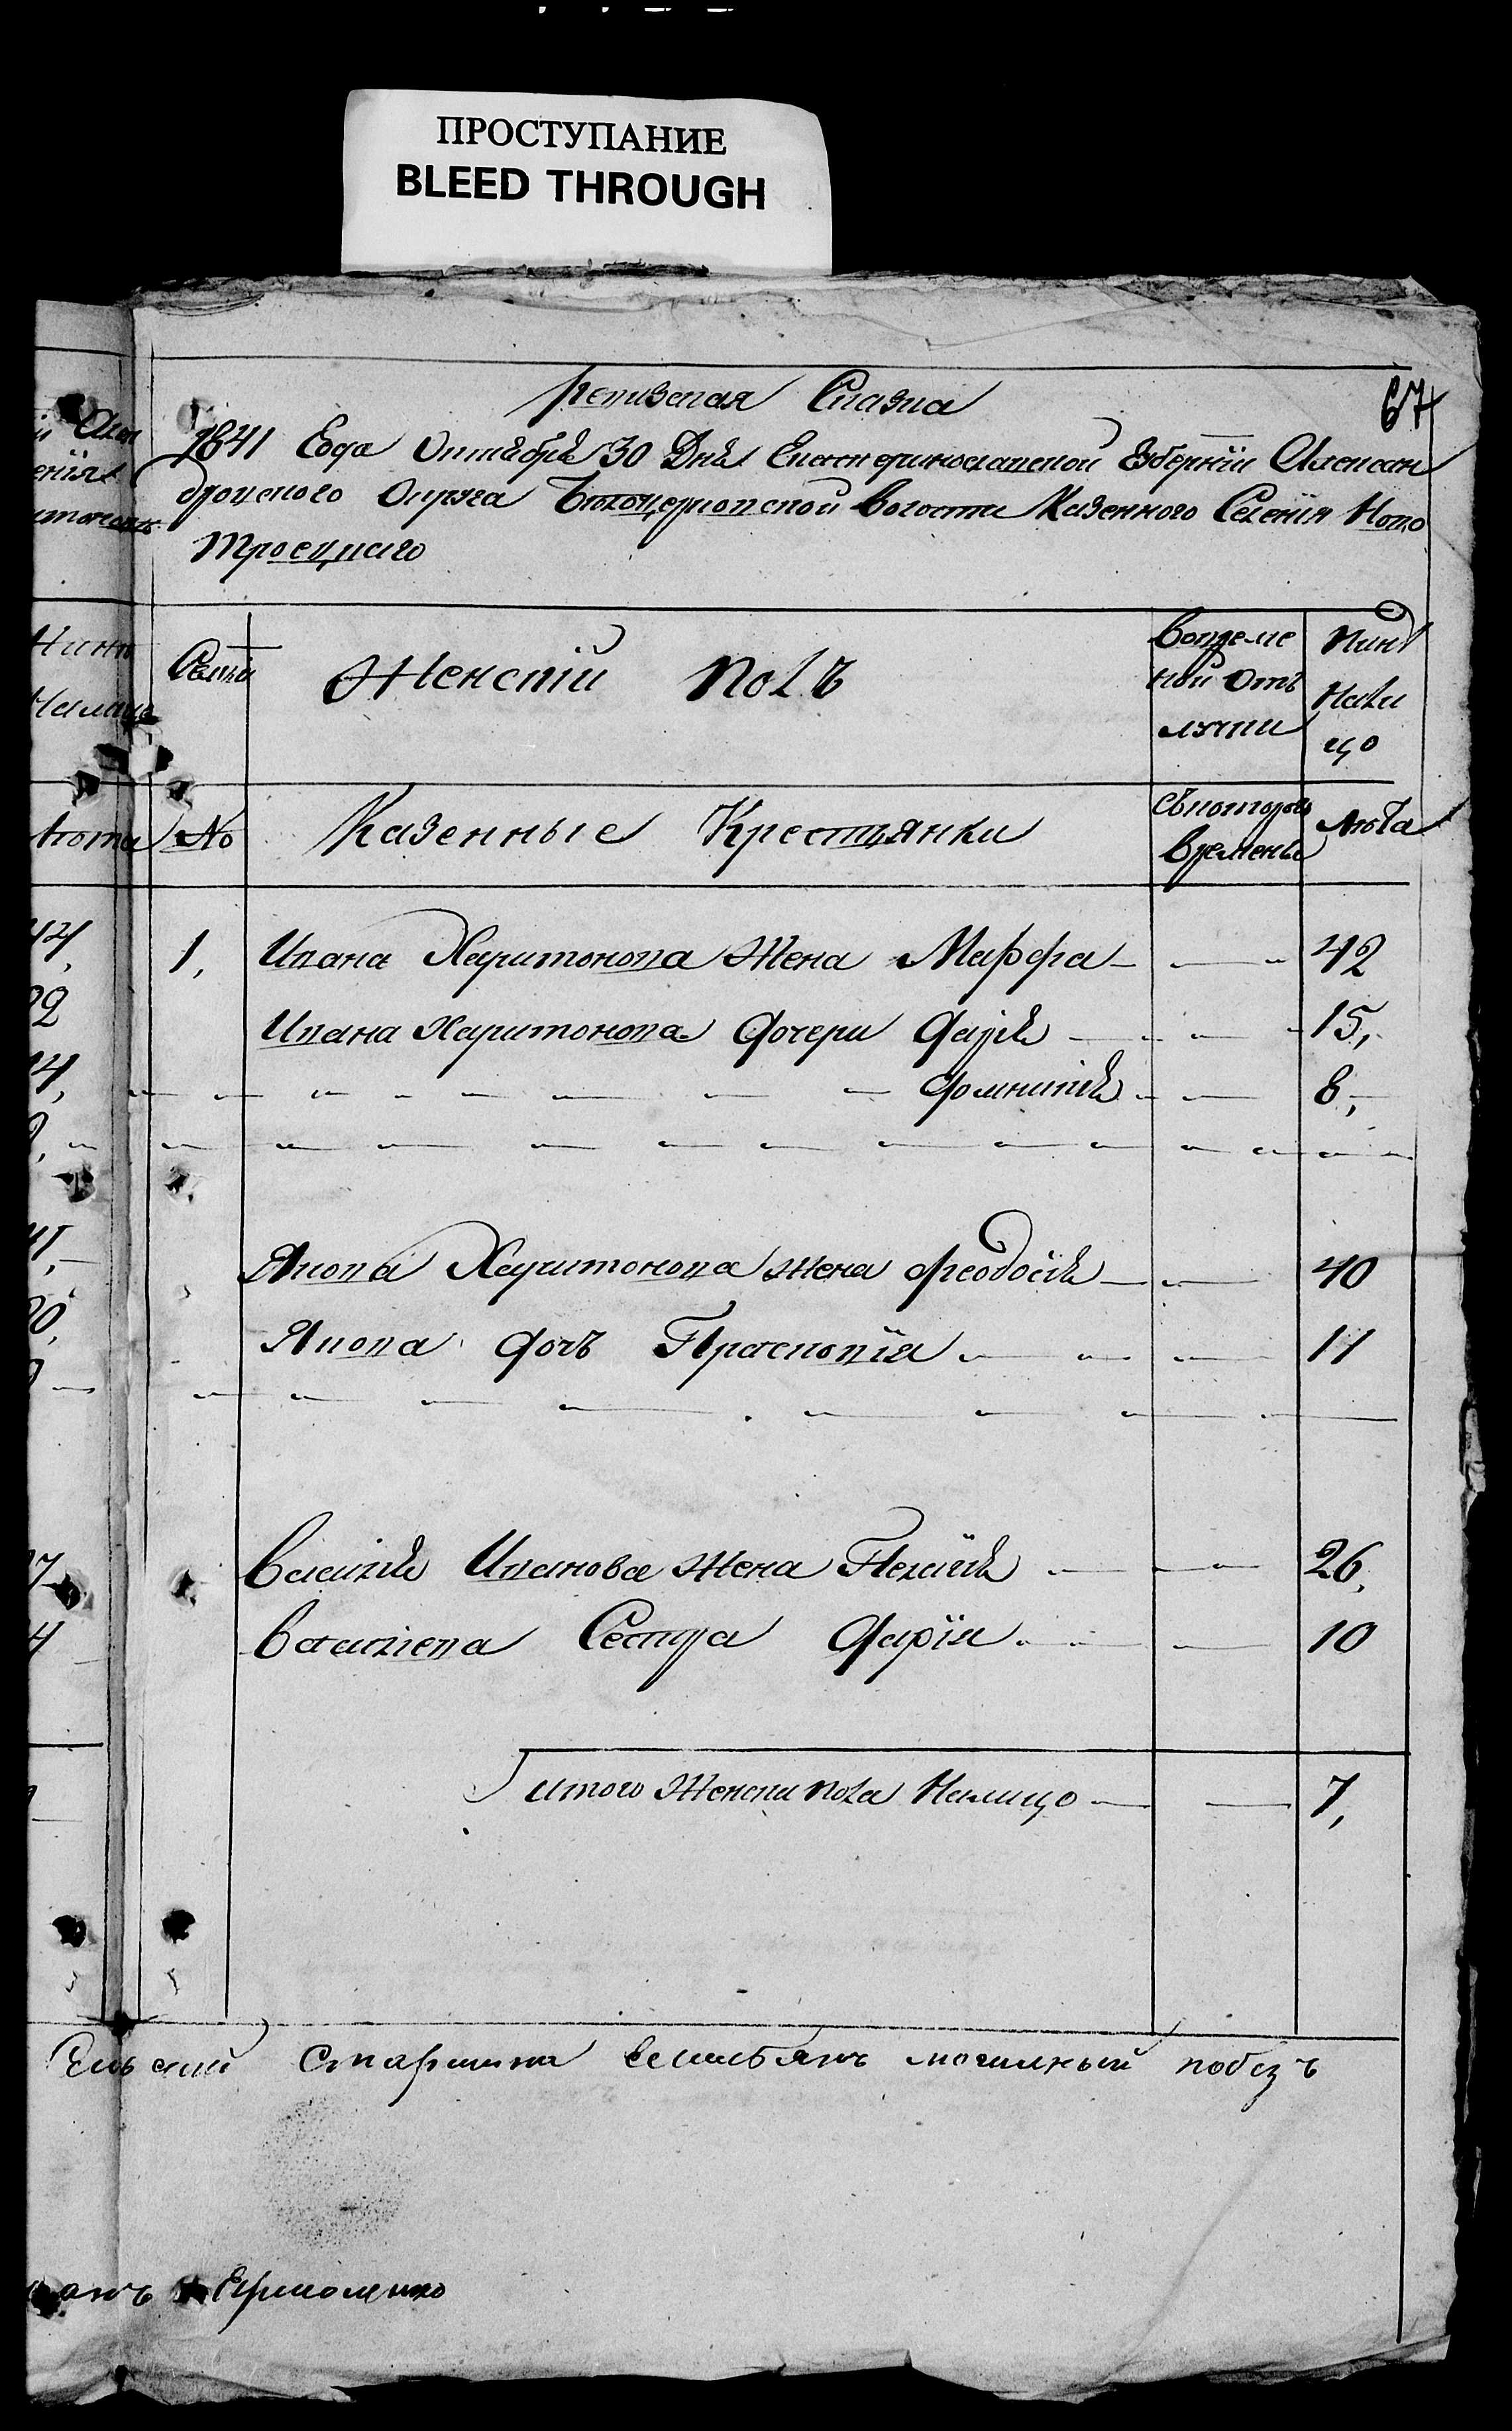 ПРОСТУПАНИЕ
BLEED THROUGH
67
Ревизская Сказка
1841 Года Октября 30 Дня Екатеринославской Губернїи Алексан
дровского Округа Белоцерковской Волости Казенного Селенїя Ново
троецкаго
Семьи Женскїй полъ
вовреме
ной отъ
лучки
Нине
Нали
цо
№ Казенные Крестьянки
Съкоторого
времени
лета
1, Ивана Харитонова Жена Марфа 42
Ивана Харитонова дочери дарья 15,
домникїя 8,
Якова Харитонова жена феодосїя 40
Якова дочь Прасковїя 11
Василїя Иванова жена Пелагїя 26,
Василїева Сестра дарїя 10
итого Женска пола Налицо 7,
Сельский Старшина
Ермоленко